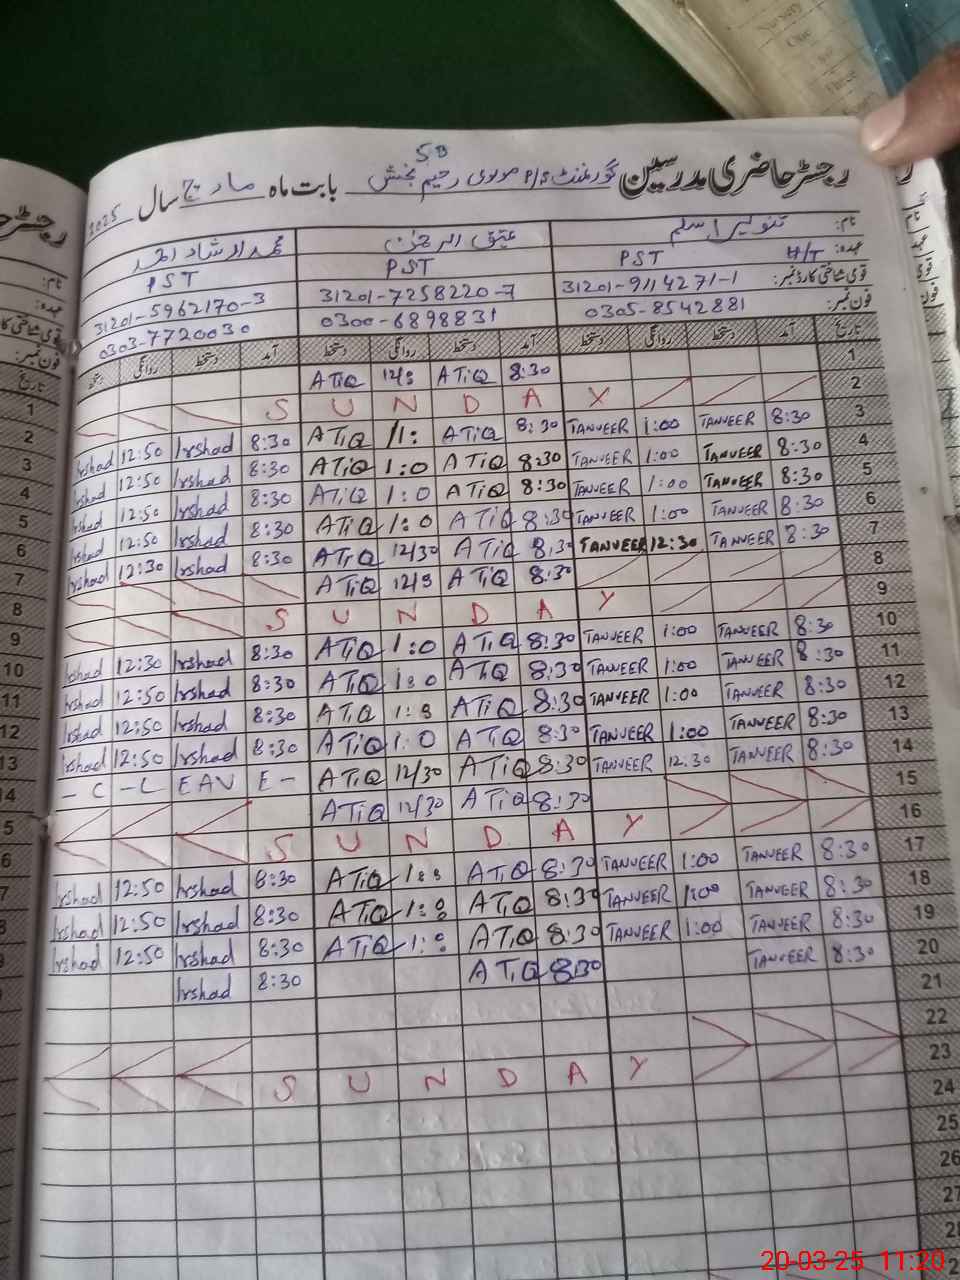 رجسٹر حاضری مدرسین گورنمنٹ P/S مولوی رحیم بخش SB بابت ماہ مارچ سال 2025
نام: تنویر اسلم عتیق الرحمٰن محمد ارشاد احمد
عہدہ: H/T PST PST PST
قومی شناختی کارڈ نمبر: 31201-9114271-1 31201-7258220-7 31201-5962170-3
فون نمبر: 0305-8542881 0300-6898831 0303-7720030
تاریخ آمد دستخط روانگی دستخط آمد دستخط روانگی دستخط آمد دستخط روانگی دستخط
ATiQ ATiQ 8:30 1
S U N D A Y 2
Irshad 12:50 Irshad 8:30 ATiQ ATiQ 8:30 TANVEER 1:00 TANVEER 8:30 3
Irshad 12:50 Irshad 8:30 ATiQ 1:0 ATiQ 8:30 TANVEER 1:00 TANVEER 8:30 4
Irshad 12:50 Irshad 8:30 ATiQ 1:0 ATiQ 8:30 TANVEER 1:00 TANVEER 8:30 5
Irshad 12:50 Irshad 8:30 ATiQ 1:0 ATiQ 8:30 TANVEER 1:00 TANVEER 8:30 6
Irshad 12:30 Irshad 8:30 ATiQ 12/30 ATiQ 8:30 TANVEER 12:30 TANVEER 8:30 7
ATiQ ATiQ 8:30 8
S U N D A Y 9
Irshad 12:30 Irshad 8:30 ATiQ 1:0 ATiQ 8:30 TANVEER 1:00 TANVEER 8:30 10
Irshad 12:50 Irshad 8:30 ATiQ 1:0 ATiQ 8:30 TANVEER 1:00 TANVEER 8:30 11
Irshad 12:50 Irshad 8:30 ATiQ ATiQ 8:30 TANVEER 1:00 TANVEER 8:30 12
Irshad 12:50 Irshad 8:30 ATiQ 1:0 ATiQ 8:30 TANVEER 1:00 TANVEER 8:30 13
- C - L EAV E - ATiQ 12/30 ATiQ 8:30 TANVEER 12:30 TANVEER 8:30 14
ATiQ 12/30 ATiQ 8:30 15
S U N D A Y 16
Irshad 12:50 Irshad 8:30 ATiQ ATiQ 8:30 TANVEER 1:00 TANVEER 8:30 17
Irshad 12:50 Irshad 8:30 ATiQ ATiQ 8:30 TANVEER 1:00 TANVEER 8:30 18
Irshad 12:50 Irshad 8:30 ATiQ ATiQ 8:30 TANVEER 1:00 TANVEER 8:30 19
Irshad 8:30 ATiQ 8:30 TANVEER 8:30 20
21
22
S U N D A Y 23
24
25
26
27
20-03-25 11:20